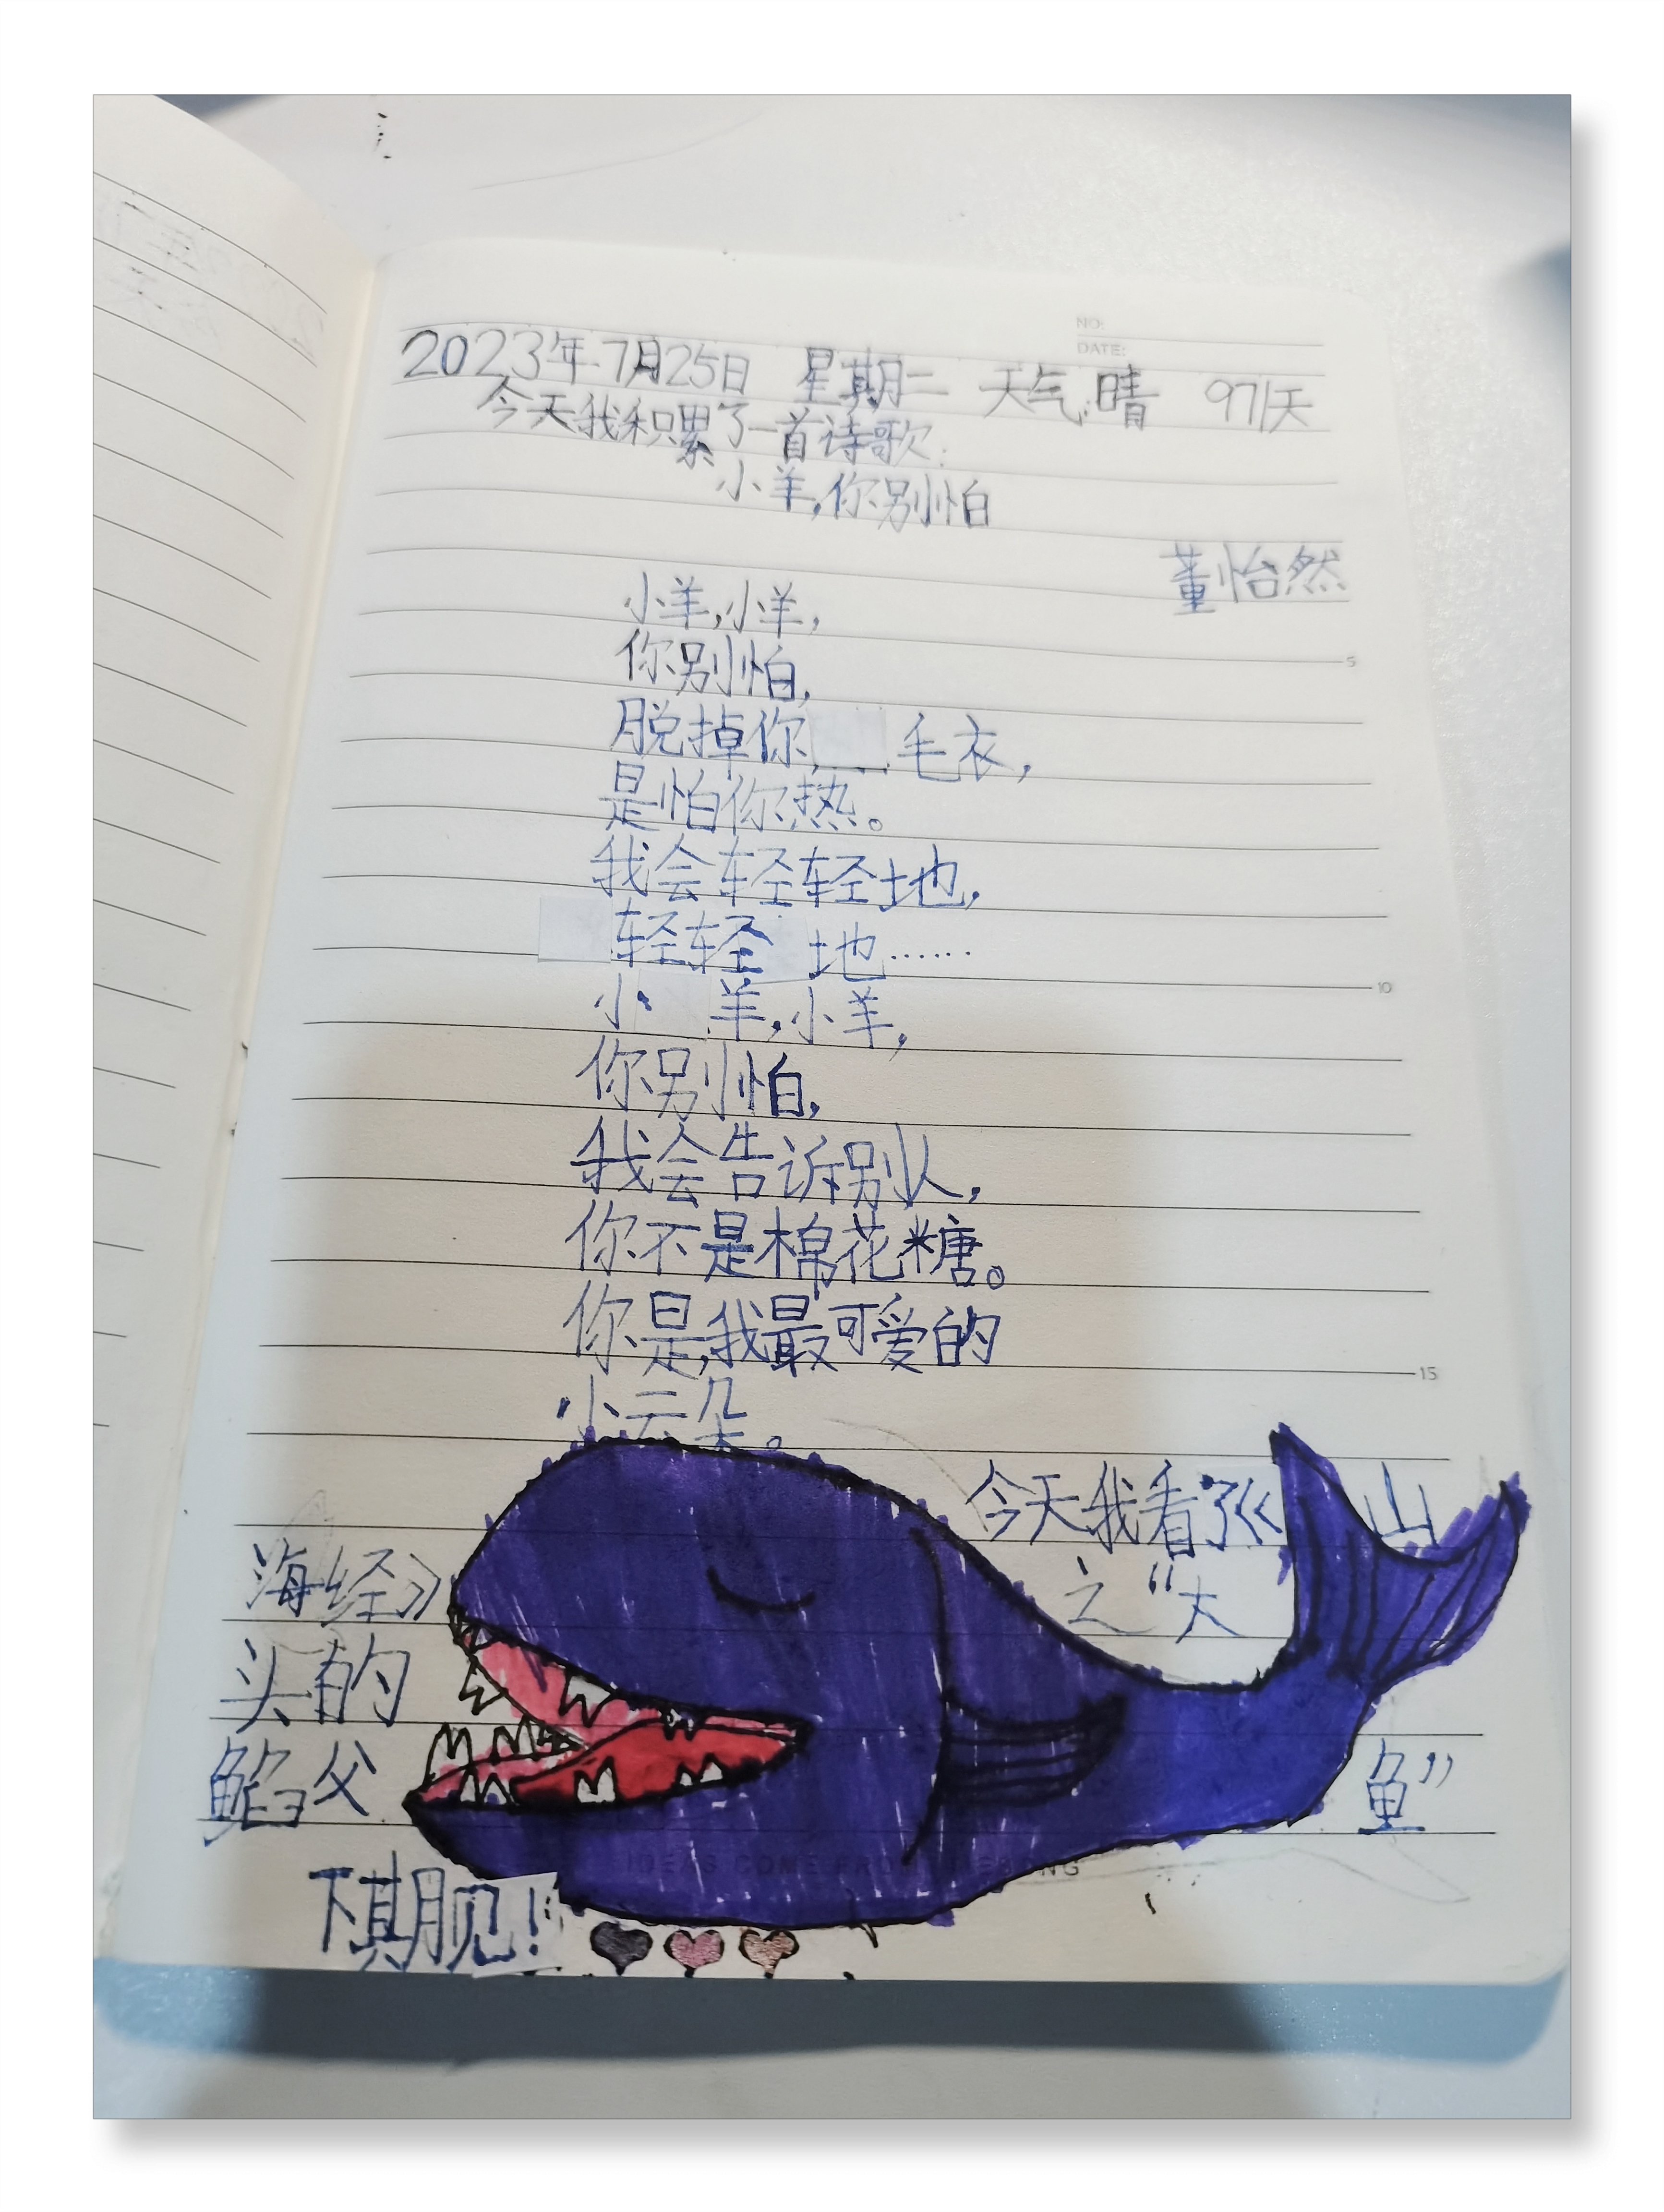 NO:
DATE:
2023年7月25日 星期二 天气:晴 971天
今天我积累了一首诗歌:
小羊,你别怕
董怡然
小羊,小羊,
你别怕,
脱掉你 毛衣,
是怕你热。
我会轻轻地,
轻轻 地……
小 羊,小羊,
你别怕,
我会告诉别人,
你不是棉花糖。
你是我最可爱的
小云朵。
今天我看了《山
海经》之“大
头的
鱼”
父
下期见!
5
10
15